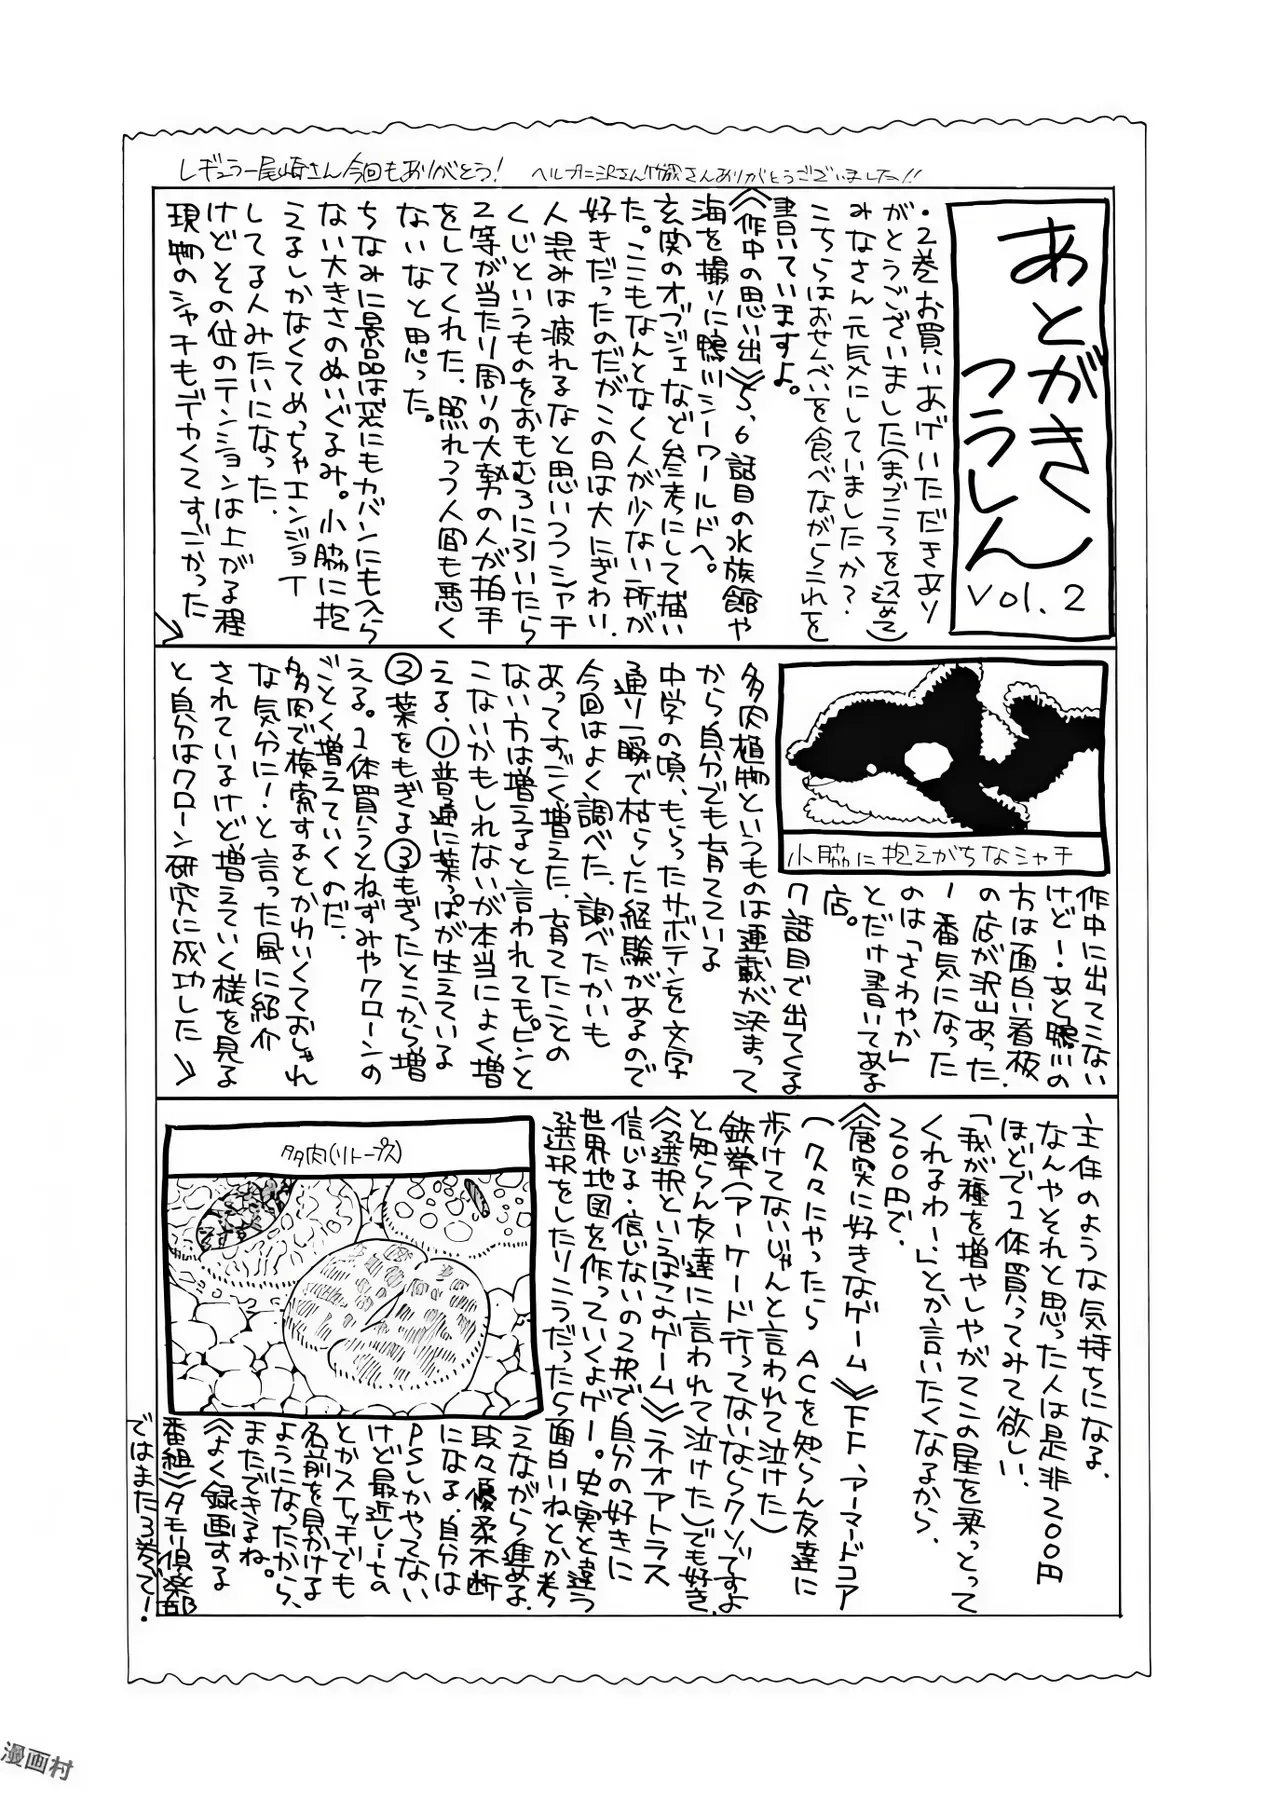 レギュラー尾崎さん今回もありがとう!
ヘルプ二沢さん さんありがとうございました!!
あとがき
つうしん
vol.2
・2巻お買いあげいただきあり
がとうございました(まごころを込めて)
みなさん元気にしていましたか?
こちらはおせんべいを食べながらこれを
書いていますよ。
《作中の思い出》5,6話目の水族館や
海を撮りに鴨川シーワールドへ。
玄関のオブジェなど参考にして描い
た。ここもなんとなく人が少ない所が
好きだったのだがこの日は大にぎわい、
人混みは疲れるなと思いつつシャチ
くじというものをおもむろに引いたら
2等が当たり周りの大勢の人が拍手
をしてくれた、照れつつ人間も悪く
ないなと思った。
ちなみに景品は決にもカバンにも入ら
ない大きさのぬいぐるみ。小脇に抱
えるしかなくてめっちゃエンジョイ
してる人みたいになった、
けどその位のテンションは上がる程
現物のシャチもデカくてすごかった
小脇に抱えがちなシャチ
作中に出てこない
けどー・あと鴨川の
方は面白い看板
の店が沢山あった、
一番気になった
のは「さわやか」
とだけ書いてある
店。
7話目で出てくる
多肉植物というものは連載が決まって
から自分でも育てている
中学の頃、もらったサボテンを文字
通り一瞬で枯らした経験があるので
今回はよく調べた、調べたかいも
あってすごく増えた、育てたことの
ない方は増えると言われてもピンと
こないかもしれないが本当によく増
える、①普通に葉っぱが生えている
②葉をもぎる③もぎったとこから増
える。1体買うとねずみやクローンの
ごとく増えていくのだ、
多肉で検索するとかわいくておしゃれ
な気分に!と言った風に紹介
されているけど増えていく様を見る
と自分はクローン研究に成功した
主任のような気持ちになる、
なんやそれと思った人は是非200円
ほどで1体買ってみて欲しい、
「我が種を増やしやがてこの星を乗っとって
くれるわー!」とか言いたくなるから、
200円で、
《唐突に好きなゲーム》FF、アーマードコア
(久々にやったらACを知らん友達に
歩けてないじゃんと言われて泣けた)
鉄拳(アーケード行ってないならクソですよ
と知らん友達に言われて泣けた)でも好き、
《選択といえばこよゲーム》ネオアトラス
信じる・信じないの2択で自分の好きに
世界地図を作っていくよゲー。史実と違う
選択をしたりこうだったら面白いねとか考
えながら進める、
段々優柔不断
になる、自分は
PSしかやってない
けど最近レートの
とかスイッチでも
名前を見かける
ようになったから、
またできるね。
《よく録画する
番組》タモリ倶楽部
ではまた3巻で!
多肉(リトープス)
漫画村